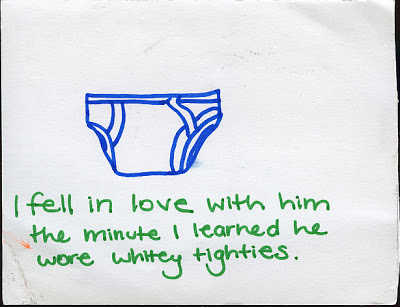 I fell in love with him
the minute I learned he
wore whitey tighties.